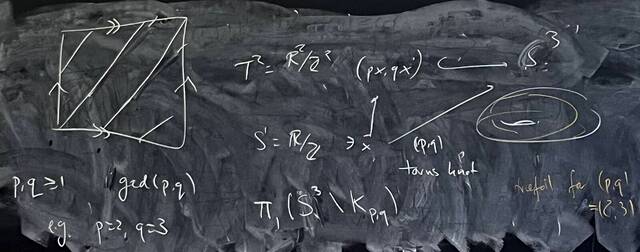 T² = ℝ²/ℤ² (px, qx) ⟶ S³
S¹ = ℝ/ℤ ∋ x
(p,q)
torus knot
p,q ≥ 1 gcd(p,q)
π₁(S³ \ K_{p,q})
trefoil for (p,q)
= (2,3)
e.g. p=2, q=3